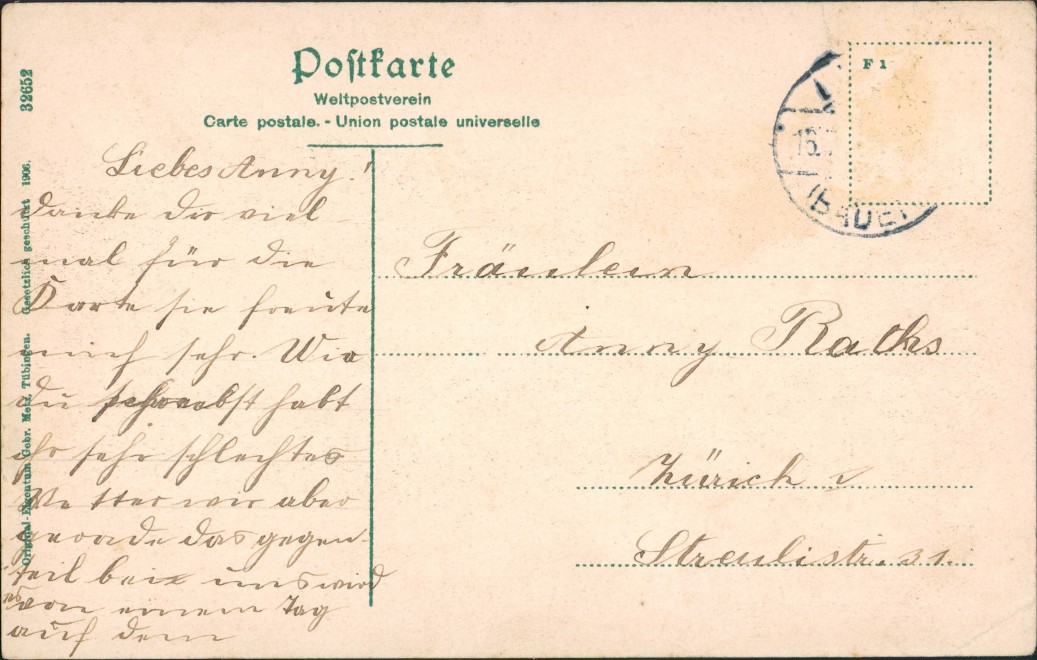 Postkarte
Weltpostverein
Carte postale. - Union postale universelle
F 1
32652
Original-Eigentum Gebr. Metz, Tübingen. Gesetzlich geschützt 1906.
15.
(BADEN
Liebes Anny!
Danke dir viel-
mal für die
Karte sie freute
mich sehr. Wie
du schreibst habt
ihr sehr schlechtes
Wetter wir aber
gerade das gegen-
teil bei uns wird
es von einem Tag
auf dem
Fräulein
Anny Rachs
Zürich
Streulistr. 31.